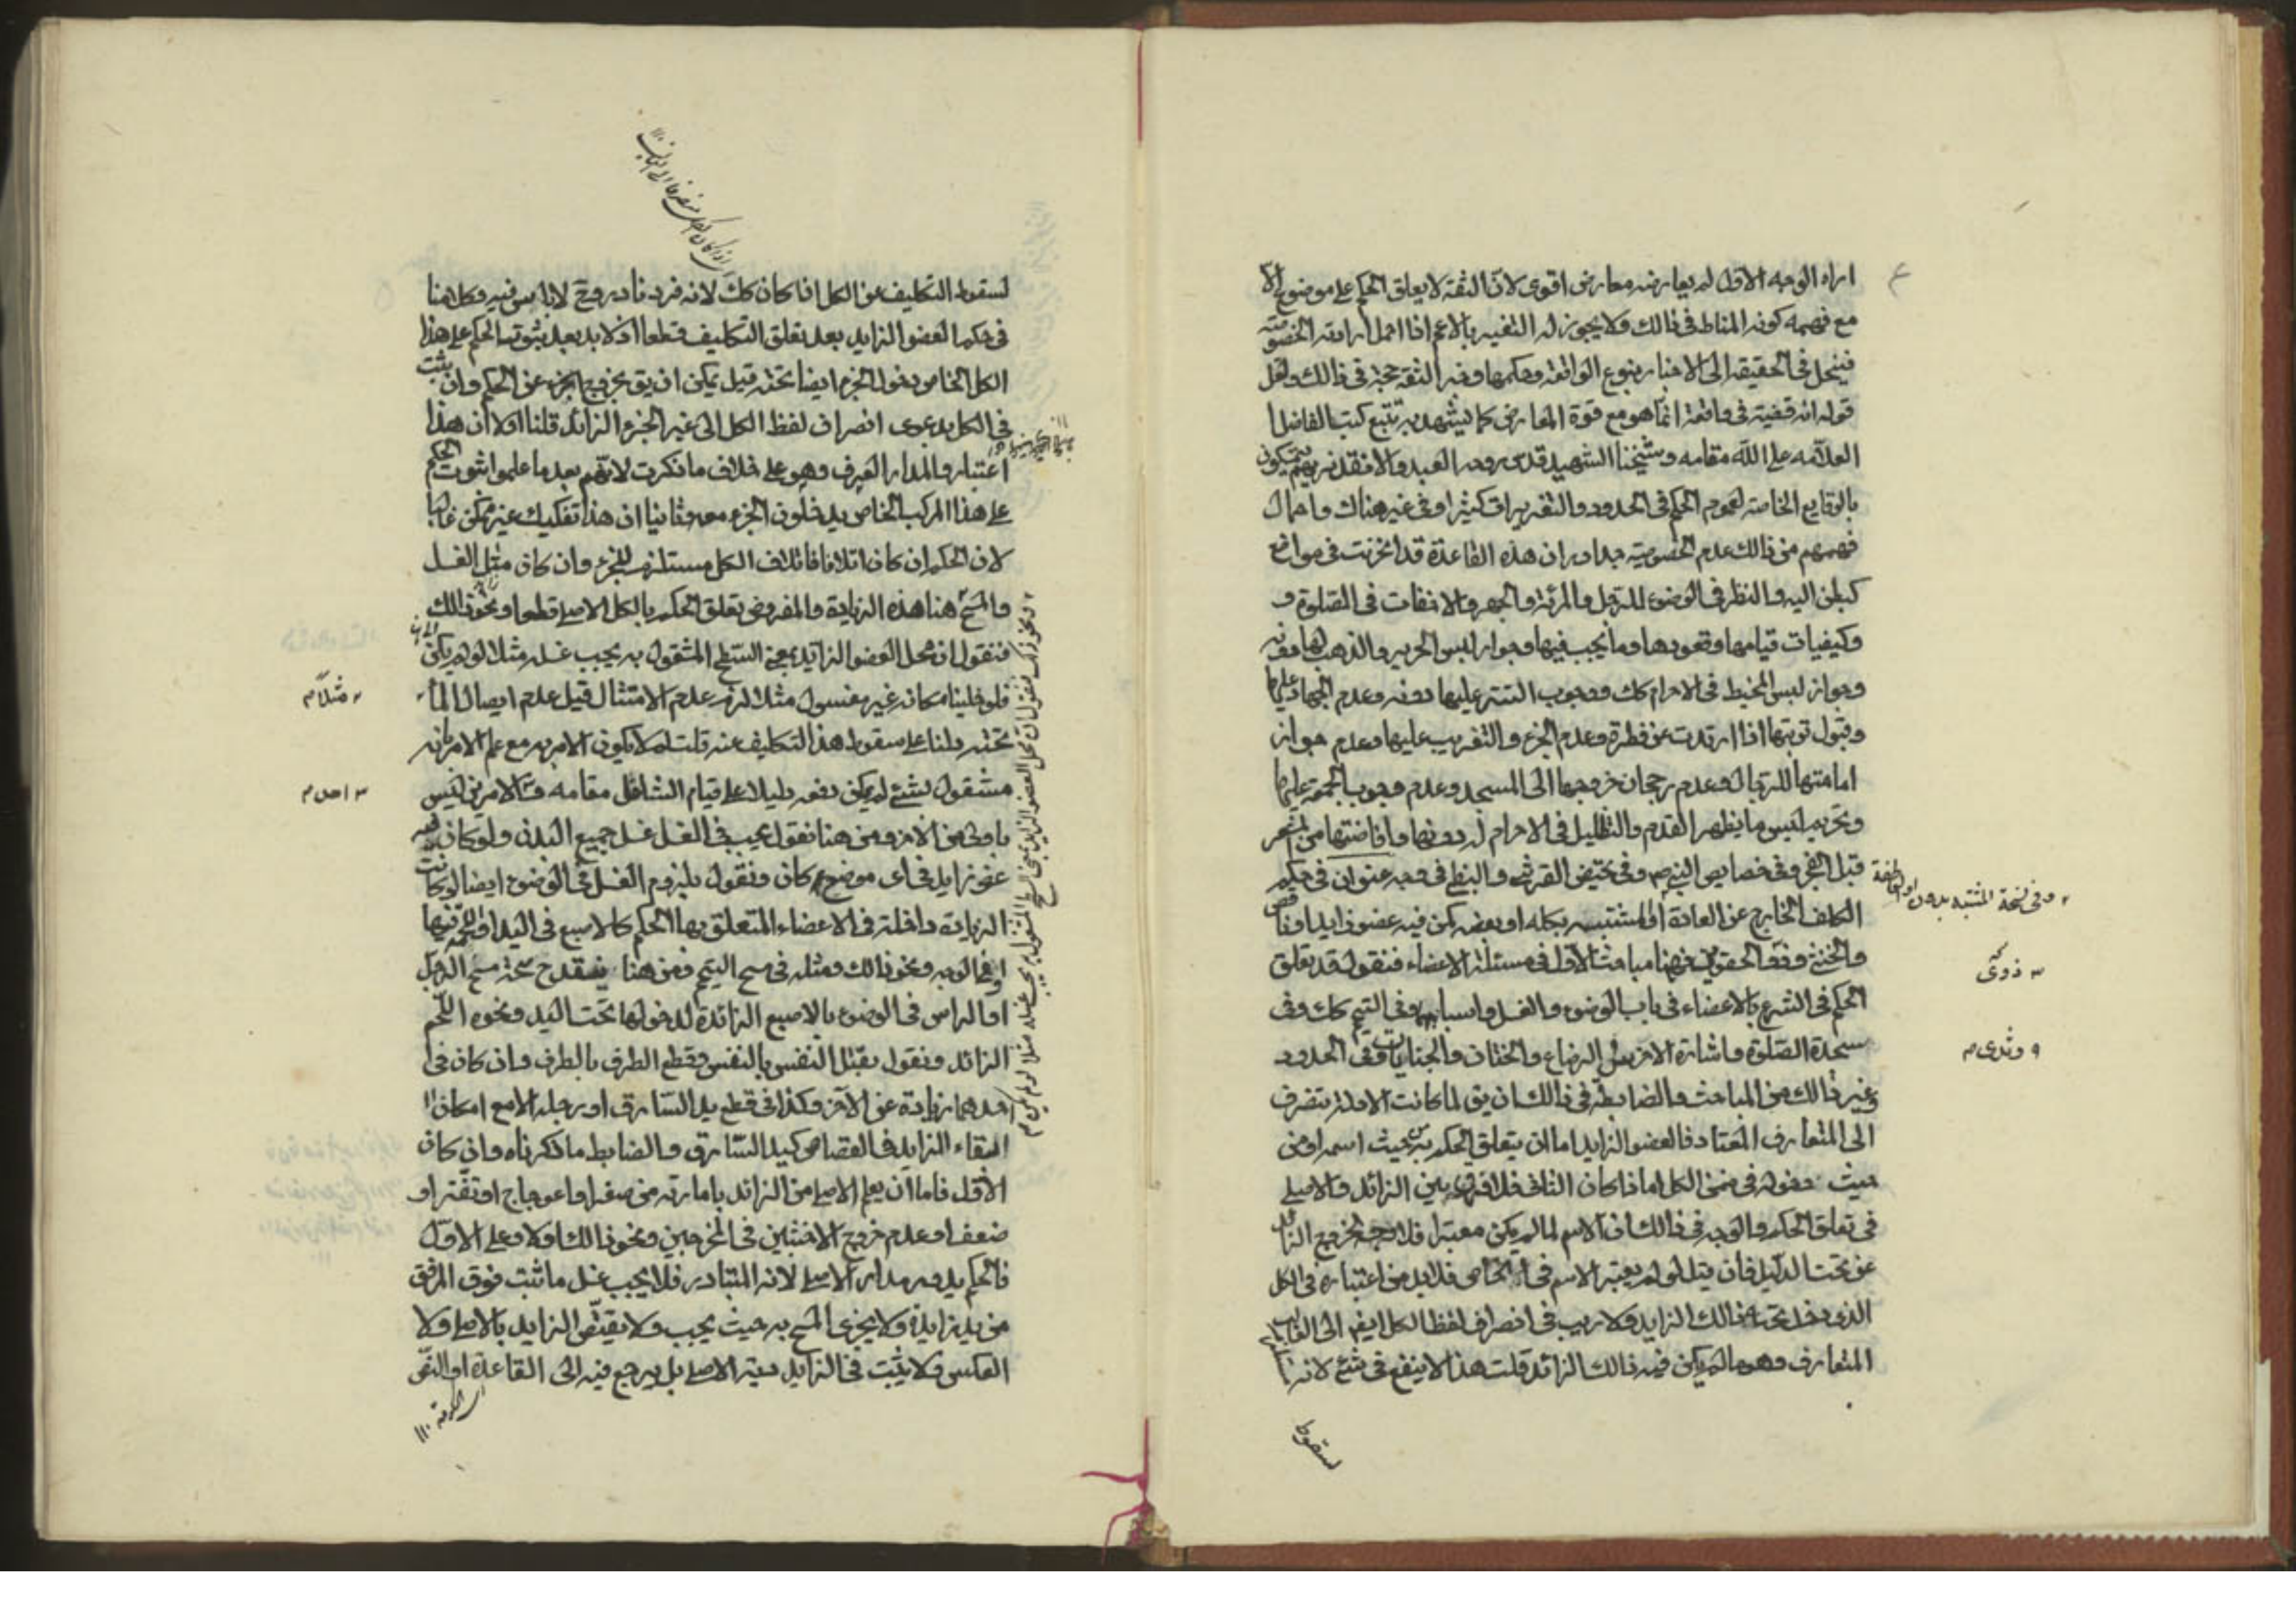 اراه الوجه الاول لم يعارضه معارض اقوى لان الثقة لا يعلق الحكم على موضوع الا
مع فهمه كونه المناط في ذالك ولا يجوز له التغيير بالاعم اذا احمل ارادته الخصوصية
فينحل في الحقيقة الى الاخبار بنوع الواقعة وحكمها وخبر الثقة حجة في ذالك ولعل
قوله انه قضية في واقعة انما هو مع قوة المعارض كما يشهد به تتبع كتب الفاضل
العلامه على الله مقامه وشيخنا الشهيد قدس روحه العبد والا فقد نريهم يتمسكون
بالوقايع الخاصة لعموم الحكم في الحدود والتقريرات كثيرا وفي غير هناك واحمال
فهمهم من ذالك عدم الخصوصية جدا وان هذه القاعدة قد انخرمت في مواضع
كبطن اليد والنظر في الوضوء للرجل والمرئة والجهر والاخفات في الصلوة و
وكيفيات قيامها وقعودها وما يجب فيها وجواز لبس الحرير والذهب لها دونه
وجواز لبس المخيط في الاحرام كك ووجوب التستر عليها دونه وعدم الجهاد عليها
وقبول توبتها اذا ارتدت عن فطرة وعدم الجز والتغريب عليها وعدم جواز
امامتها للرجال وعدم رجحان خروجها الى المسجد وعدم وجوب الجمعة عليها
وتحريم لبس ما يظهر القدم والتظليل في الاحرام له دونها وافاضتها من المشعر
قبل الفجر وفي خصايص النبي ص وفي تحيض القرشية والنبطية في وجه عنوان في حكم
المكلف الخارج عن العادة المشتبه بكله او بعضه كمن فيه عضو زايد او ناقص
والخنثى وذو الحقوين فهنا مباحث الاول في مسئلة الاعضاء فنقول قد يعلق
الحكم في الشرع بالاعضاء في باب الوضوء والغسل واسبابهما وفي التيمم كك وفي
سجدة الصلوة واشارة الاخرس والرضاع والختان والجنايات وفي الحدود
وغير ذالك من المباحث والضابطة في ذالك ان يق لما كانت الادلة تنصرف
الى المتعارف المعتاد فالعضو الزايد اما ان يتعلق الحكم به من حيث اسمه او من
حيث دخوله في ضمن الكل اما اذا كان الثاني فلا فرق بين الزائد والاصلي
في تعلق الحكم والوجه في ذالك ان الاسم لما لم يكن معتبرا فلا وجه لخروج الزائد
عن تحت الدليل فان قيل لو لم يعتبر الاسم في الخاص فلا بد من اعتباره في الكل
الذي دخل تحته ذالك الزايد ولا ريب في انصراف لفظ الكل ايضا الى الغالب
المتعارف وهو ما لم يكن فيه ذالك الزائد قلت هذا لا ينفع في شئ لانه
لسقوط
وفي نسخة المشتبه بدون او العاطفة
ذوي
وثدي
لسقوط التكليف عن الكل اذا كان كك لانه فرد نادر وح لا باس فيه وكلامنا
في حكم العضو الزايد بعد تعلق التكليف قطعا اذ لا بد بعد ثبوت الحكم على هذا
الكل الخاص دخول الجزء ايضا تحته قيل يمكن ان يق بخروج الجزء عن الحكم وان ثبت
في الكل بدعوى انصراف لفظ الكل الى غير الجزء الزائد قلنا اولا ان هذا
اعتبار والمدار العرف وهو على خلاف ما ذكرت لانهم بعد ما علموا ثبوت الحكم
على هذا المركب الخاص يدخلون الجزء معه وثانيا ان هذا تفكيك غير ممكن غالبا
لان الحكم ان كان اتلافا فاتلاف الكل مستلزم للجزء وان كان مثل الغسل
والمسح هنا هذه الزيادة والمفروض تعلق الحكم بالكل الاصلي قطعا ونحو ذالك
فنقول ان محل العضو الزايد بمعنى السطح المشغول به يجب غسله مثلا لو لم يكن
فلو خلينا مكانه غير مغسول مثلا لزم عدم الامتثال قيل عدم ايصال الماء
تحته دلنا على سقوط هذا التكليف عنه قلت لم لا يكون الامر به مع علم الامر بانه
مشغول بشئ لم يمكن دفعه دليلا على قيام الشاغل مقامه والامرين ليس
باولى من الاخر ومن هنا نقول يجب في الغسل غسل جميع البدن ولو كان فيه
عضو زايد في اى موضع كان ونقول بلزوم الغسل في الوضوء ايضا لو كانت
الزيادة داخلة في الاعضاء المتعلق بها الحكم كالاصبع في اليد او لحمة فيها
او في الوجه ونحو ذالك ومثله في مسح التيمم ومن هنا ينقدح صحة مسح الرجل
او الراس في الوضوء بالاصبع الزائدة لدخولها تحت اليد ونحوه اللحم
الزائد ونقول بقتل النفس بالنفس وقطع الطرف بالطرف وان كان في
احدهما زيادة عن الاخر وكذا في قطع يد السارق او رجله الا مع امكان
ابقاء الزايد والقصاص كيد السارق والضابط ما ذكرناه وان كان
الاول فاما ان يعلم الاصلي من الزائد بامارته من صغر او اعوجاج او نقص او
ضعف او عدم خروج الاخبثين في المخرجين ونحو ذالك او لا وعلى الاول
فالحكم يدور مدار الاصلي لانه المتبادر فلا يجب غسل ما ثبت فوق المرفق
من يد زايدة ولا يجزى المسح به حيث يجب ولا يقتص الزايد بالاصلي ولا
العكس ولا يثبت في الزايد دية الاصلي بل يرجع فيه الى القاعدة او النص
مثلا
احد
ونحو ذالك فنقول ان محل العضو الزايد بمعنى السطح المشغول به يجب غسله مثلا لو لم يكن